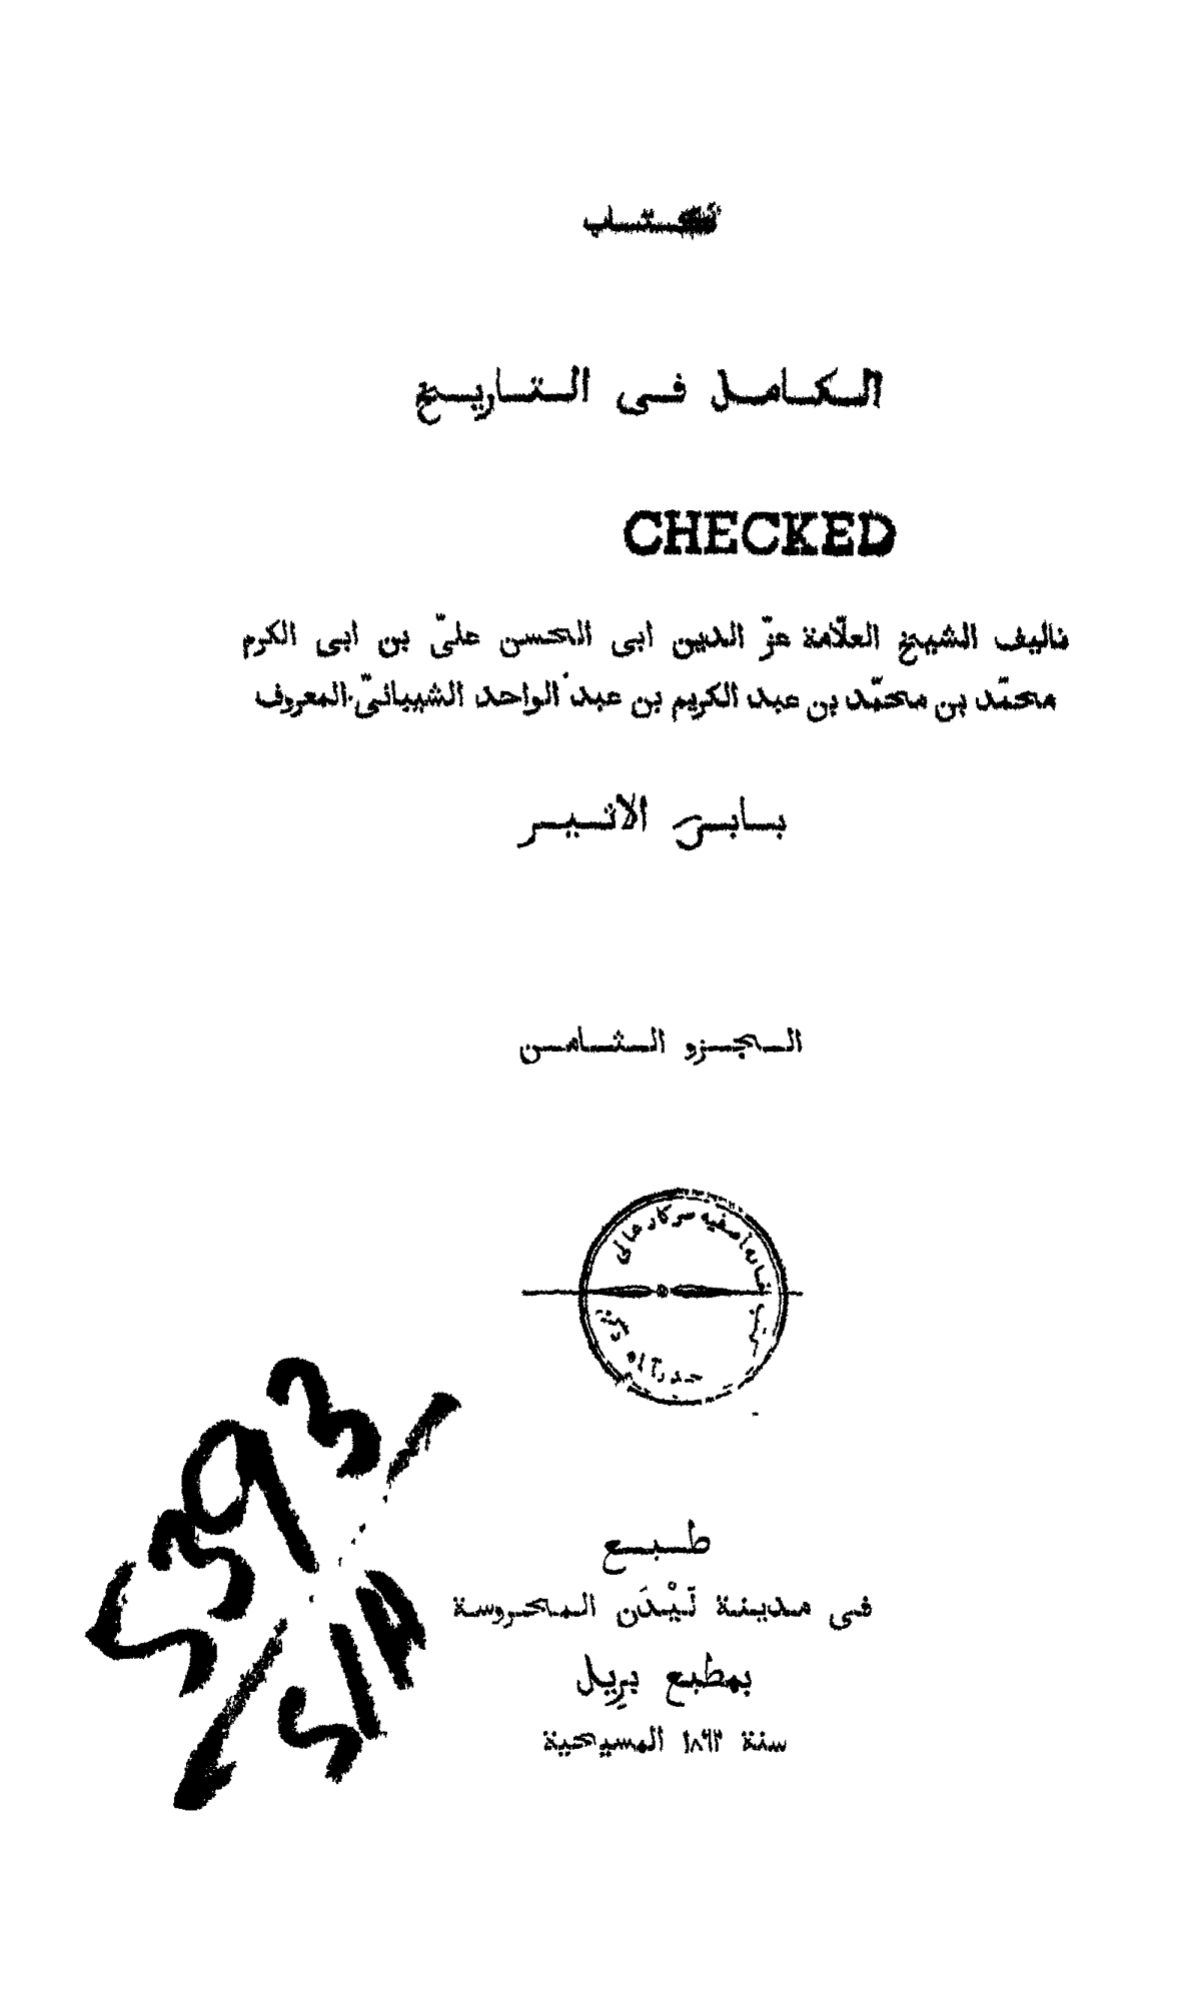 كتاب
الكامل فى التاريخ
CHECKED
تاليف الشيخ العلّامة عزّ الدين ابى الحسن علىّ بن ابى الكرم
محمّد بن محمّد بن عبد الكريم بن عبد الواحد الشيبانىّ المعروف
بابن الاثير
الجزو الثامن
آصفيه سركار عالى
حيدرآباد دكن
5393
طبع
فى مدينة لَيْدَن المحروسة
بمطبع بِريل
سنة ١٨٦٢ المسيحية